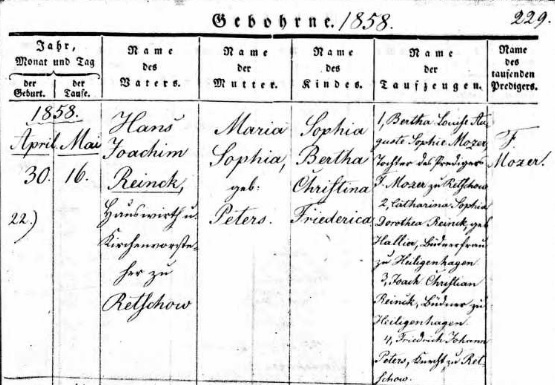 Gebohrne. 1858. 229.
Jahr, Monat und Tag
der Geburt. der Taufe.
Name des Vaters.
Name der Mutter.
Name des Kindes.
Name der Taufzeugen.
Name des taufenden Predigers.
1858.
April Mai
30. 16.
22.)
Hans
Joachim
Reinck,
Hauswirth u
Kirchenvorste-
her zu
Retschow
Maria
Sophia,
geb:
Peters.
Sophia
Bertha
Christina
Friederica
1, Bertha Louise Au-
guste Sophie Mozer,
Tochter des Predigers
F. Mozer zu Retschow
2, Catharina Sophia
Dorothea Reinck, geb
Hallier, Büdnerfrau
zu Heiligenhagen
3, Joach Christian
Reinck, Büdner zu
Heiligenhagen
4, Friedrich Johann
Peters, Knecht zu Ret
schow.
F.
Mozer.